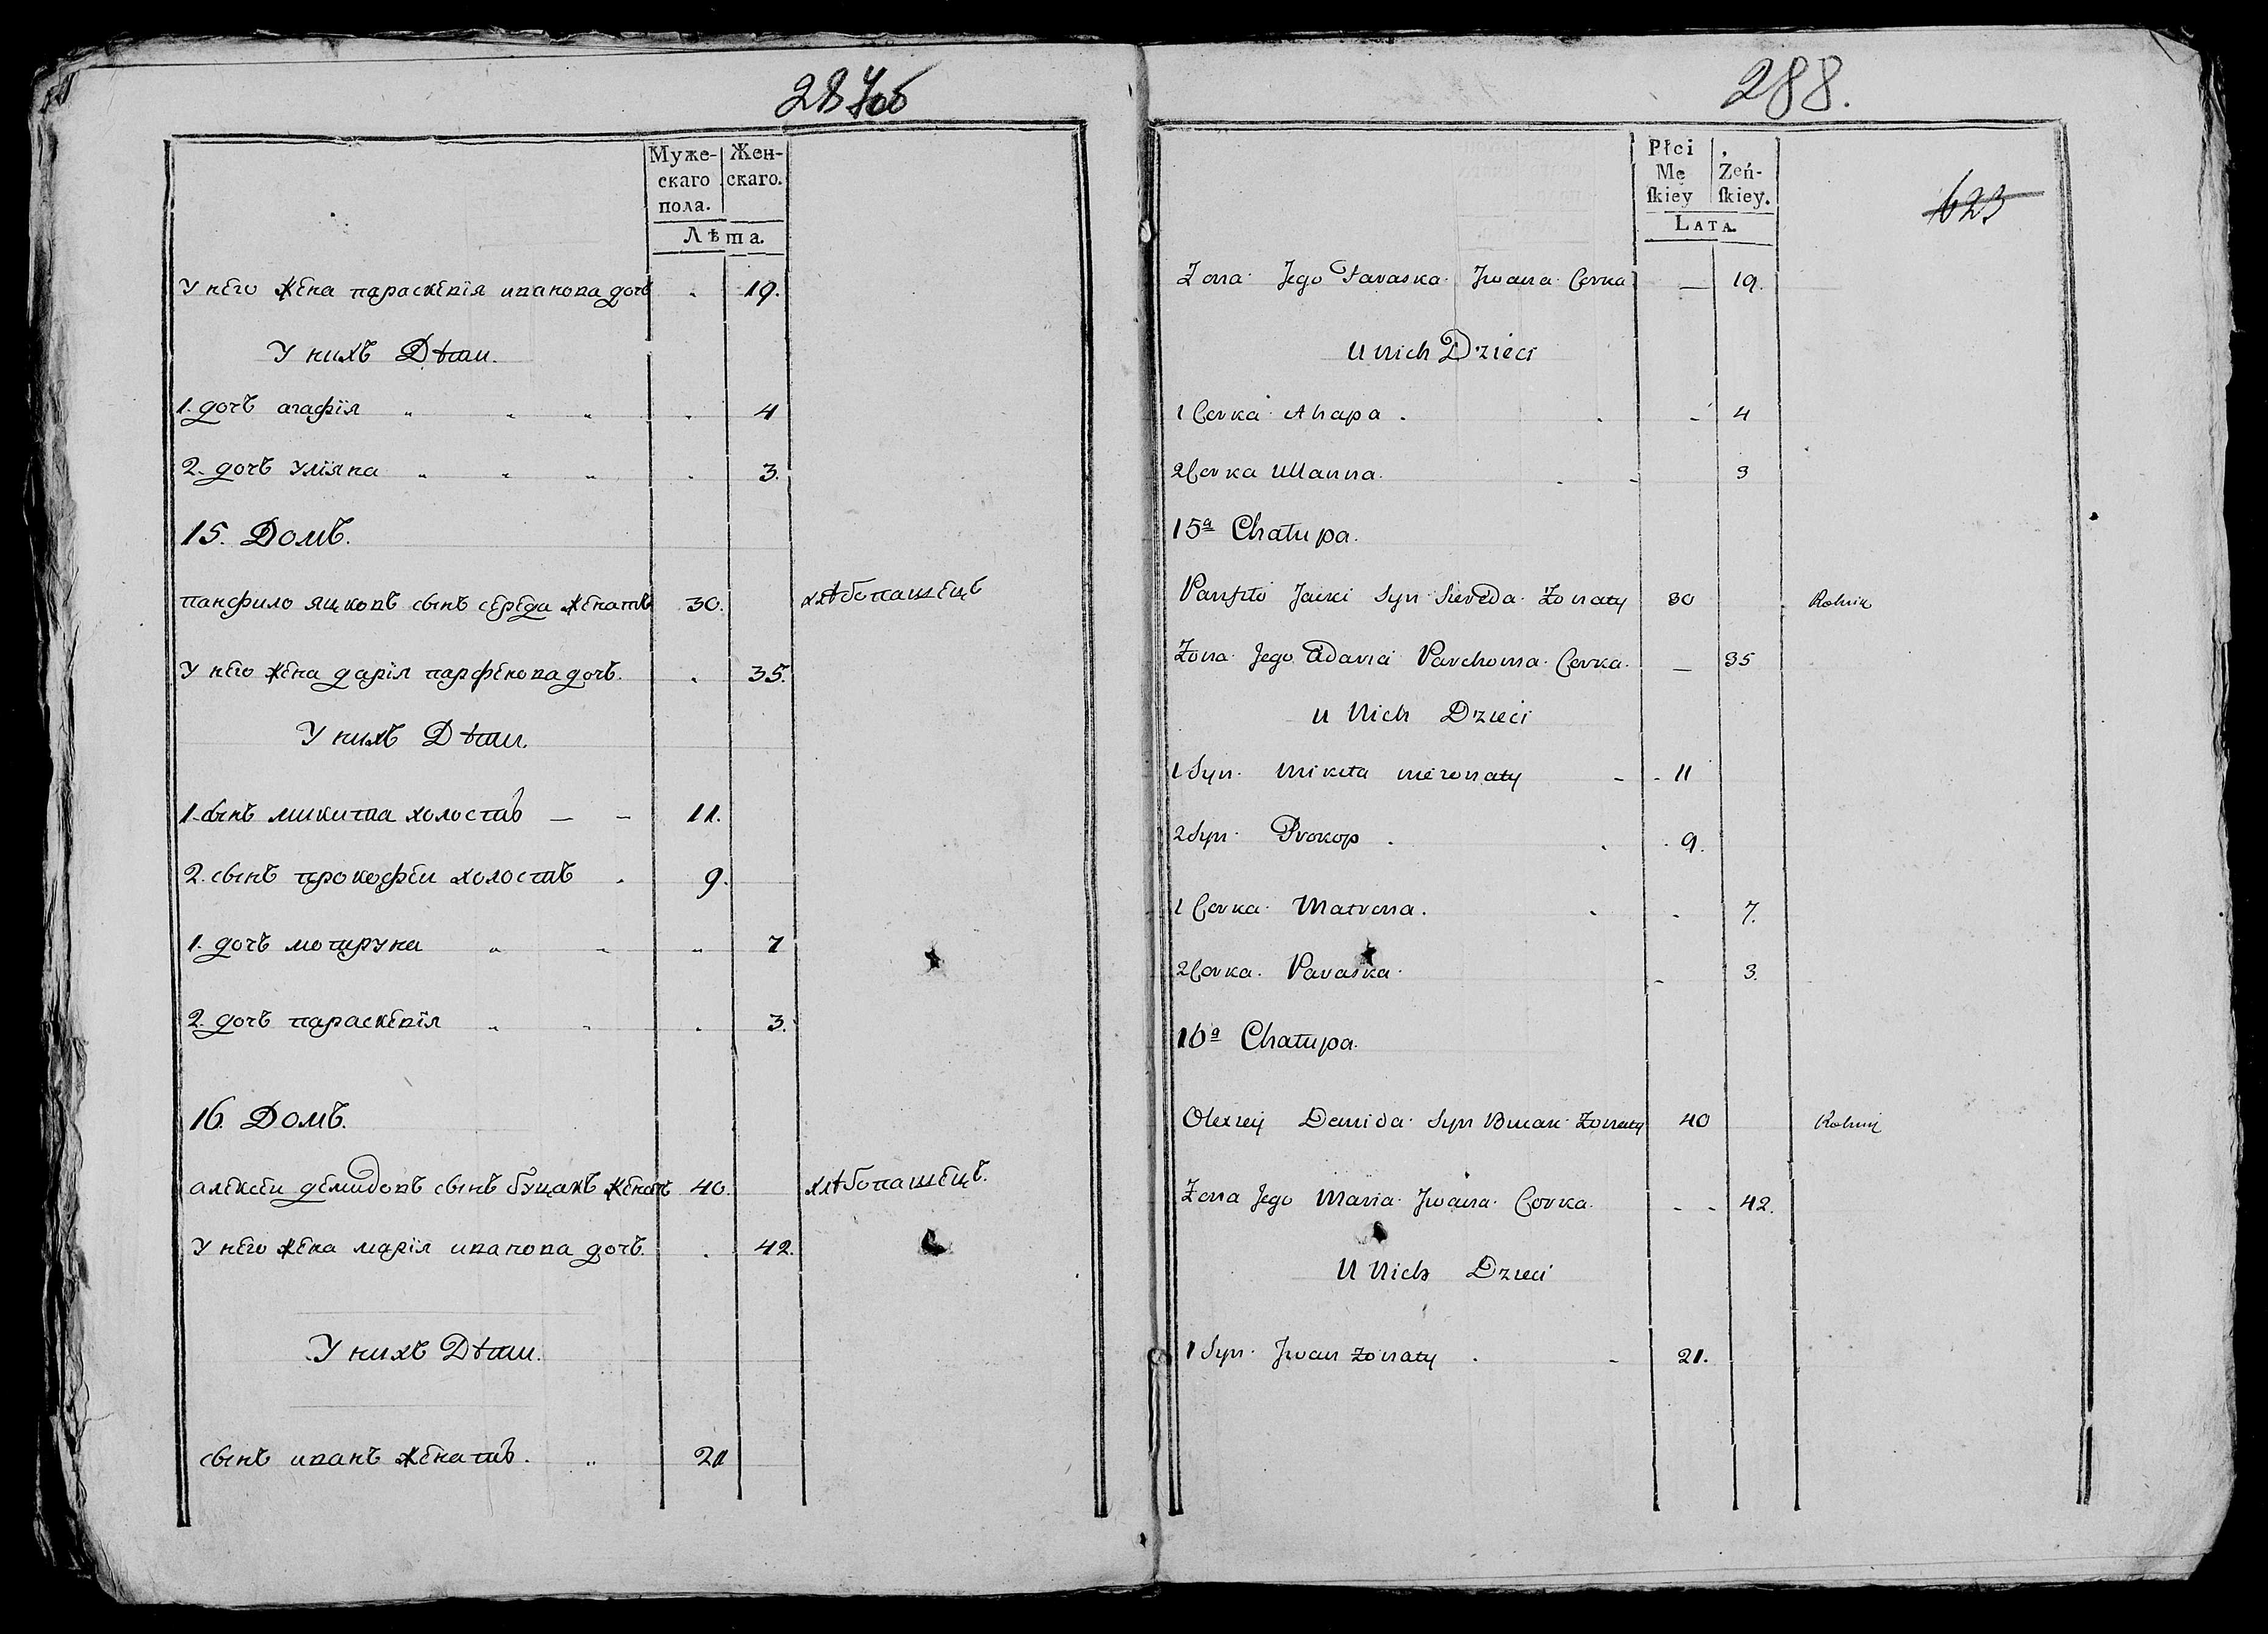 287об
Муже-
скаго
пола.
Жен-
скаго.
Лѣта.
У него жена параскевія иванова дочь . 19.
У нихъ Дѣти.
1. дочъ агафія „ „ „ . 4
2. дочъ уліяна „ „ „ . 3.
15. Домъ.
панфило яцковъ сынъ середа женатъ 30. хлѣбопашецъ
У него жена дарія парфенова дочъ. . 35.
У нихъ Дѣти.
1. сынъ микита холостъ — – 11.
2. сынъ прокофеи холостъ . 9.
1. дочъ мотруна „ „ „ 7
2. дочъ параскевія „ „ . 3.
16. Домъ.
алексеи демидовъ сынъ буцакъ женатъ 40. хлѣбопашецъ.
У него жена марія иванова дочъ. . 42.
У нихъ Дѣти.
сынъ иванъ женатъ. „ 21
288.
623
Płci
Mę
skiey
Żeń-
skiey.
LATA.
Zona Jego Paraska Jwana Corka — 19.
U nich Dzieci
1 Corka Ahapa . . – 4
2 Corka Ulianna. . – 3
15ª Chałupa.
Panfiło Jacki Syn Sereda Zonaty 30 Rolnik
Zona Jego Odaria Parchoma Corka. — 35
U Nich Dzieci
1 Syn Mikita niezonaty – - 11
2 Syn Prokop . . . 9.
1 Corka Matrona. . . 7.
2 Corka. Paraska. – 3.
16ª Chałupa.
Olexiey Demida Syn Bucak Zonaty 40 Rolnik
Zona Jego Maria Jwana Corka. - - 42.
U Nich Dzieci
1 Syn Jwan zonaty . – 21.